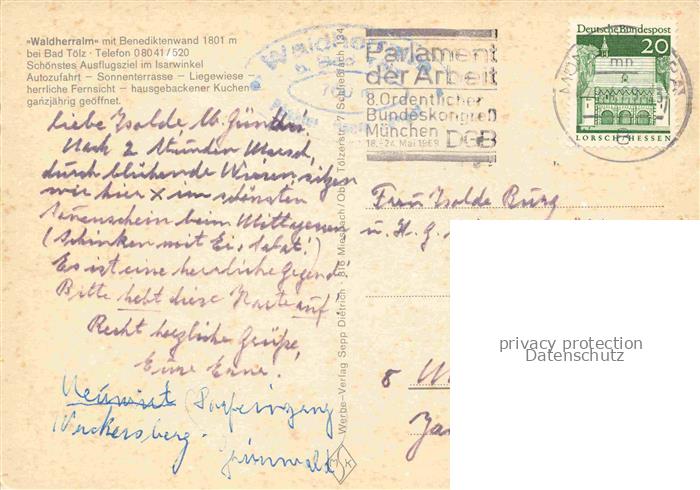 »Waldherralm« mit Benediktenwand 1801 m
bei Bad Tölz · Telefon 08041/520
Schönstes Ausflugsziel im Isarwinkel
Autozufahrt – Sonnenterrasse – Liegewiese –
herrliche Fernsicht – hausgebackener Kuchen
ganzjährig geöffnet.
Liebe Isolde, lb. Günther.
Nach 2 Stunden Marsch,
durch blühende Wiesen sitzen
wir hier x im schönsten
Sonnenschein beim Mittagessen
(Schinken mit Ei, Salat!)
Es ist eine herrliche Gegend!
Bitte hebt diese Karte auf!
Recht herzliche Grüße,
Eure Erne.
Wackersberg.
Grünwald
Werbe-Verlag Sepp Dietrich · 816 Miesbach/Obb., Tölzerstr. 7, Schließfach 134
MSK
Waldherralm
Parlament
der Arbeit
8. Ordentlicher
Bundeskongreß
München
18.-24. Mai 1969 DGB
Deutsche Bundespost
20
LORSCH/HESSEN
mn
Frau Isolde Burg
u. H. G.
8
privacy protection
Datenschutz